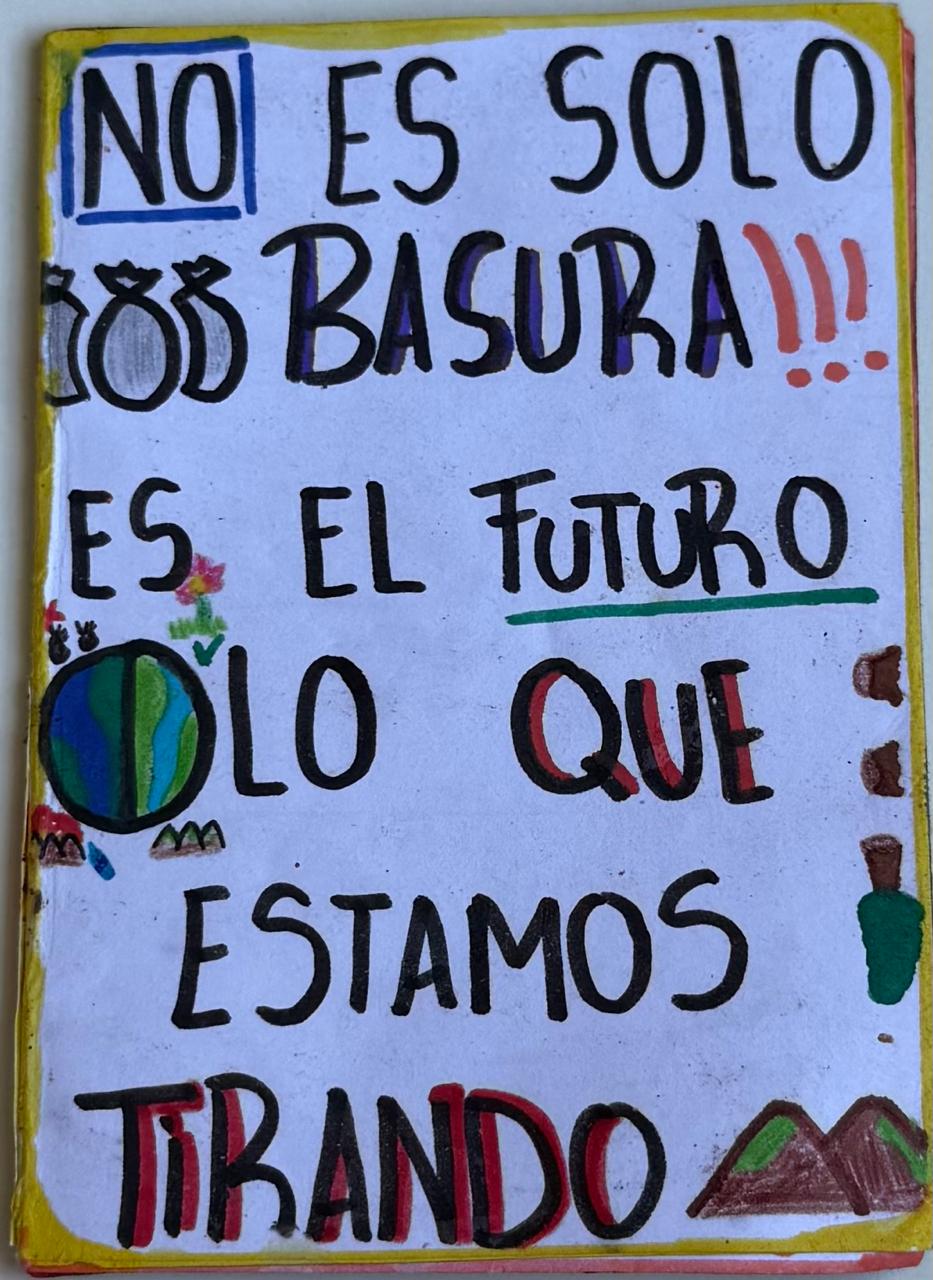 NO ES SOLO
BASURA!!!
ES EL FUTURO
LO QUE
ESTAMOS
TIRANDO